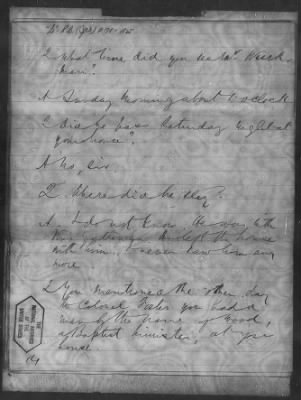 Q What time did you see Mr
man?
A Sunday morning about 6 o'clock
Q Did he pass Saturday night at
your house?
A No, sir.
Q. Where did he stay?
A I do not know. He was with
the house
with him. I never saw him any
more
Q You mentioned the other day
to Colonel you had a
man by the name of Wood,
a Baptist minister, at your
house
THE
NATIONAL ARCHIVES
OF THE
UNITED STATES